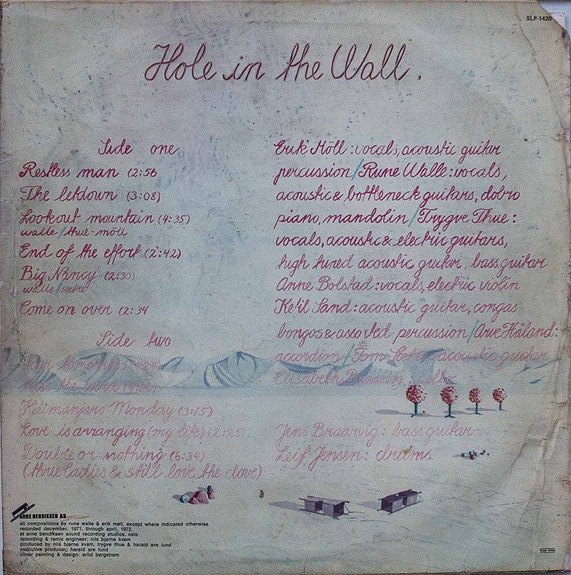 SLP-1420
Hole in the Wall.
Side one
Restless man (2:56
The letdown (3:08)
Lookout mountain (4:35)
walle/thue-möll
End of the effort (2:42)
Big Nancy (2:30)
walle/sæter
Come on over (2:34
Side two
Kilimanjaro Monday (3:15)
Love is arranging (my life) (2:25)
Double or nothing (6:34)
(three ladies & still love the dove)
Erik Möll: vocals, acoustic guitar
percussion/Rune Walle: vocals,
acoustic & bottleneck guitars, dobro
piano, mandolin/Trygve Thue:
vocals, acoustic & electric guitars,
high tuned acoustic guitar, bass guitar
Anne Bolstad: vocals, electric violin
Ketil Sand: acoustic guitar, congas
bongos & assorted percussion/Arve Håland:
accordion/Tom Sæter, acoustic guitar
Elisabeth
Jens Braarvig: bass guitar
Leif Jensen: drums
ARNE BENDIKSEN AS
all compositions by rune walle & erik möll, except where indicated otherwise
recorded december, 1971, through april, 1972,
at arne bendiksen sound recording studios, oslo
recording & remix engineer: nils bjarne kvam
produced by nils bjarne kvam, trygve thue & harald are lund
executive producer, harald are lund
cover painting & design: arild bergstrøm